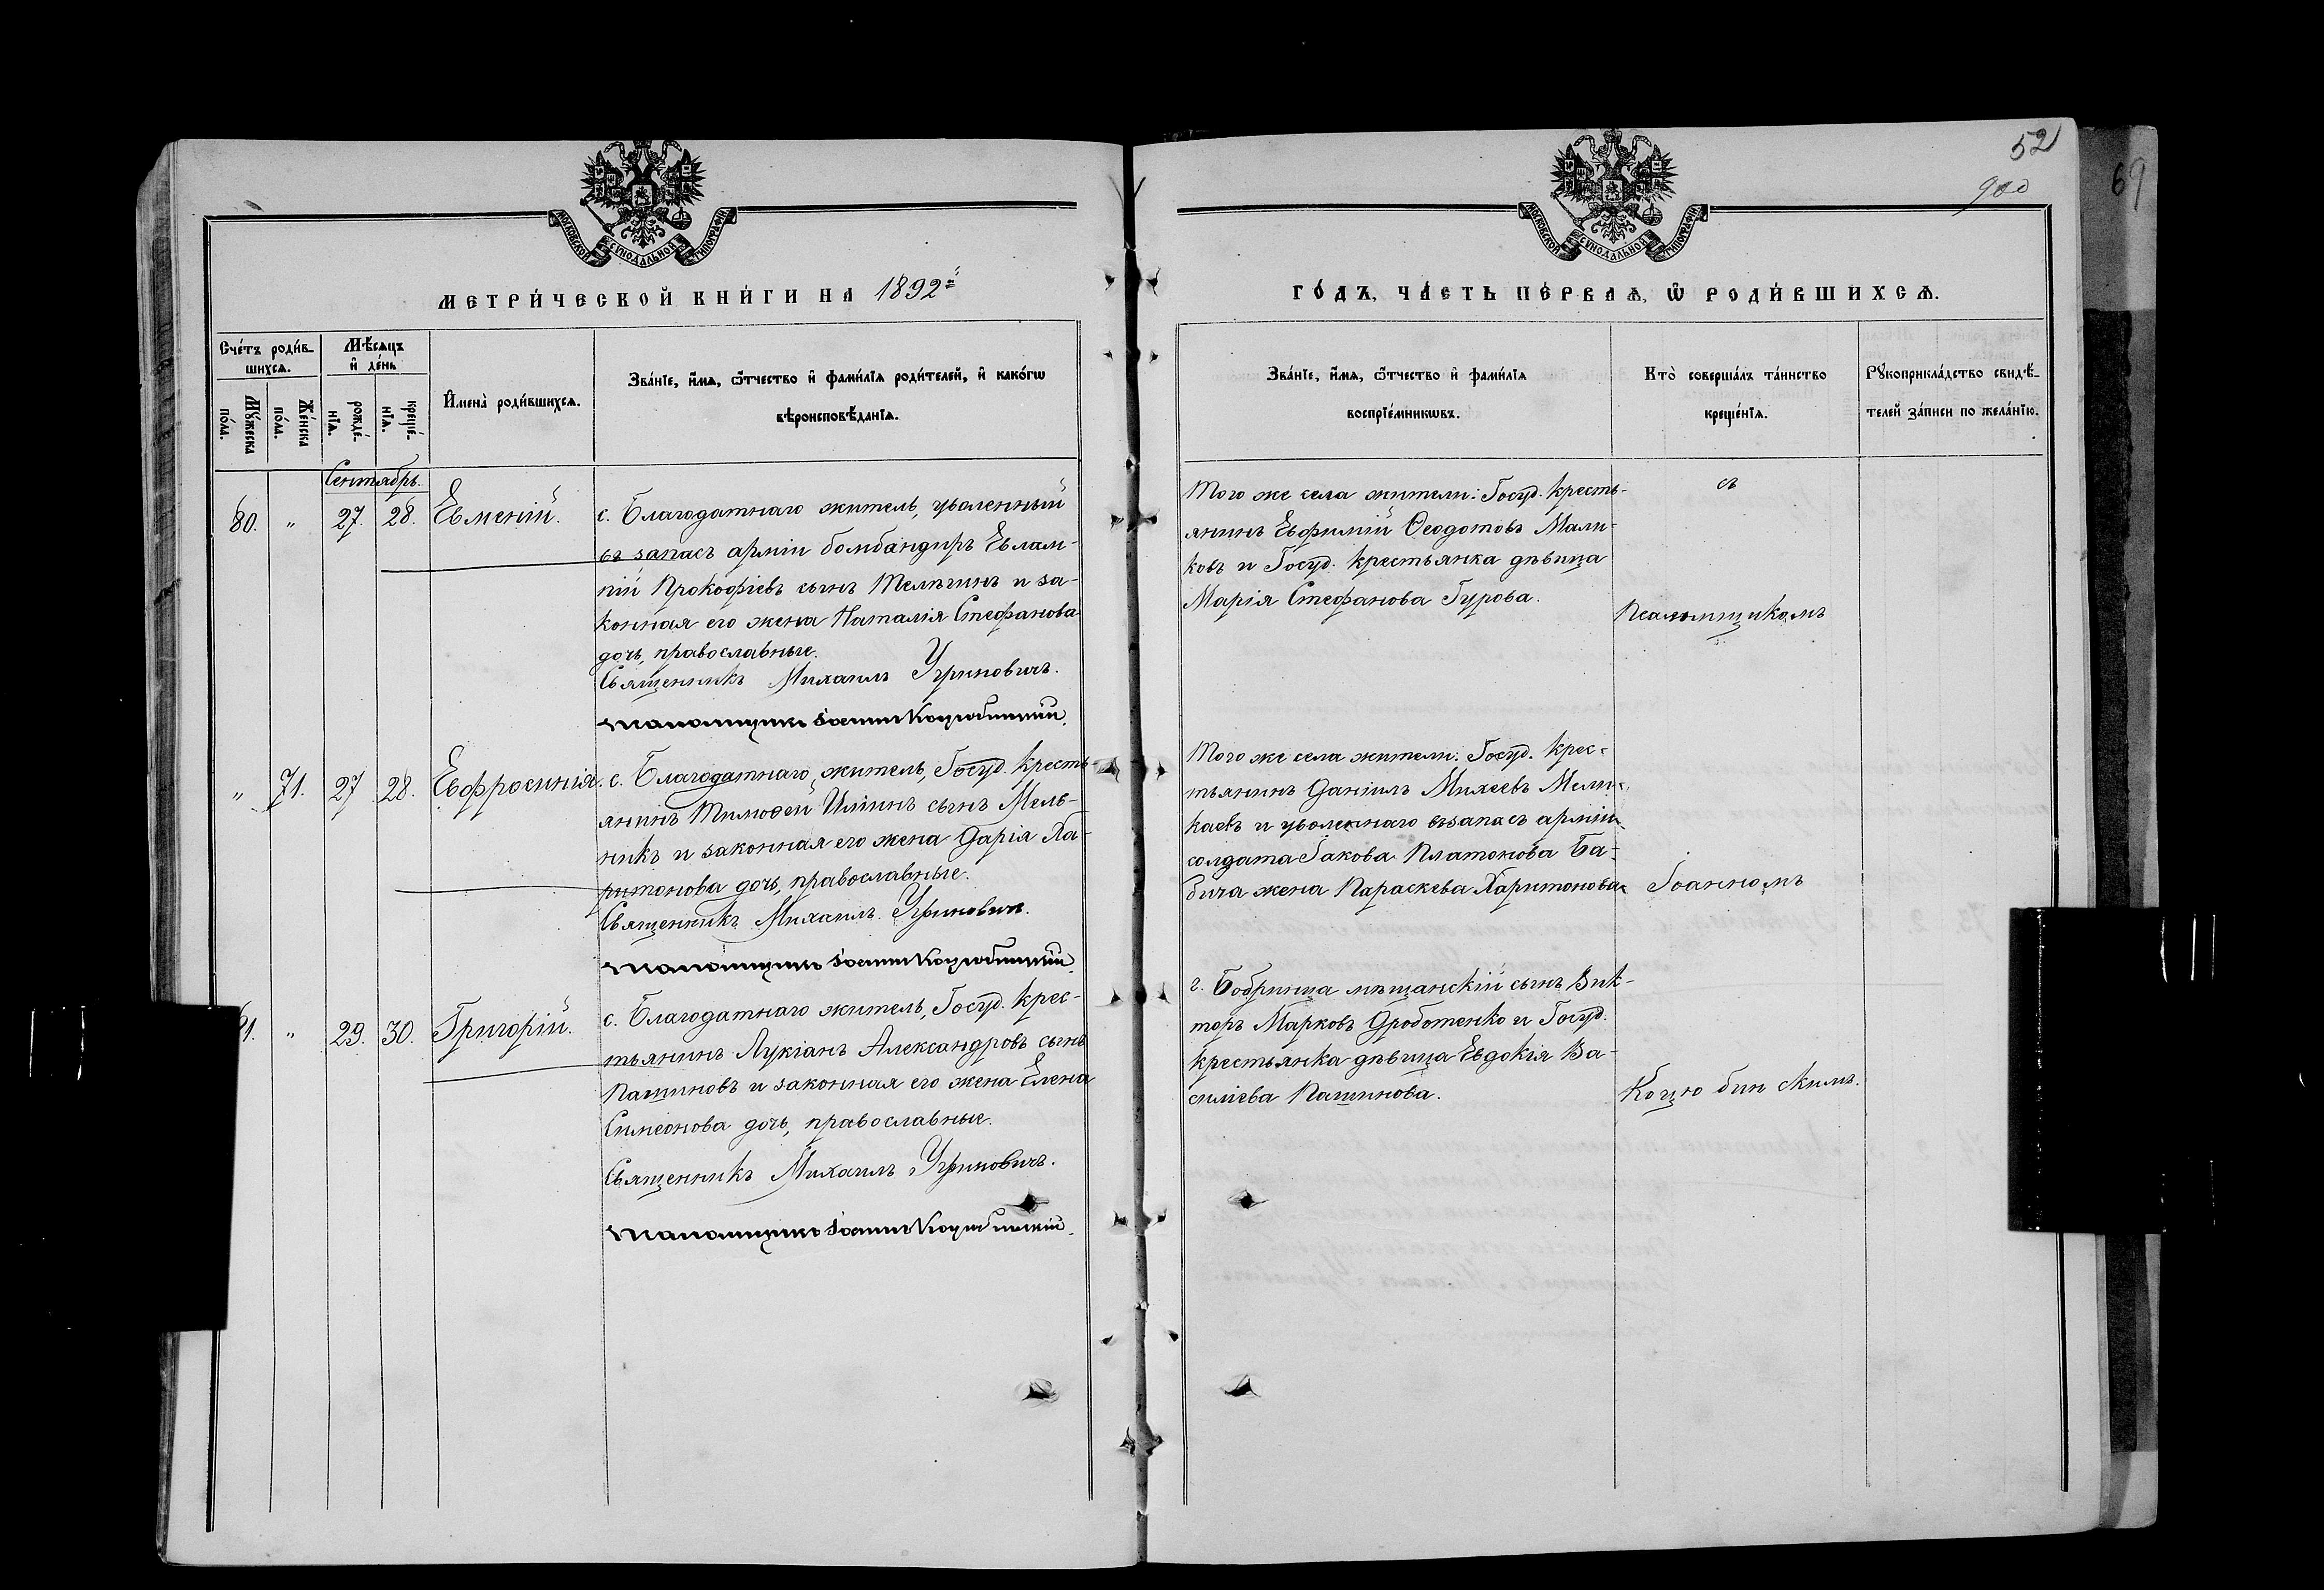 52
900
69
МОСКОВСКОЙ СѴНОДАЛЬНОЙ ТИПОГРАФІИ
МОСКОВСКОЙ СѴНОДАЛЬНОЙ ТИПОГРАФІИ
МЕТРИ́ЧЕСКОЙ КНИ́ГИ НА 1892й
ГО́ДЪ, ЧА́СТЬ ПЕ́РВАѦ, Ѡ҆ РОДИ́ВШИХСѦ.
Сче́тъ роди́в-
шихсѧ.
Мꙋ́жеска
по́ла.
Же́нска
по́ла.
Мѣ́сѧцъ
и҆ де́нь
рожде́-
нїѧ.
креще́-
нїѧ.
И҆мена̀ роди́вшихсѧ.
Зва́нїе, и҆́мѧ, ѻ҆́тчество и҆ фамилїѧ роди́телей, и҆ како́гѡ
вѣроисповѣ́данїѧ.
Зва́нїе, и҆́мѧ, ѻ҆́тчество и҆ фами́лїѧ
воспрїе́мникѡвъ.
Кто̀ соверша́лъ та́инство
креще́нїѧ.
Рꙋкоприкла́дство свидѣ́-
телей за́писи по жела́нїю.
Сентябрь.
80. " 27. 28. Евменій.
с. Благодатнаго житель, уволенный
въ запасъ арміи бомбандиръ Евлам-
пій Прокофіевъ сынъ Телѣгинъ и за-
конная его жена Наталія Стефанова
дочь, православные.
Священникъ Михаилъ Угриновичъ.
Псаломщикъ Іоаннъ Коцюбинскій.
Того же села жители: Госуд. кресть-
янинъ Евфимій Ѳеодотовъ Мали-
ковъ и Госуд. крестьянка дѣвица
Марія Стефанова Гурова.
съ
Псаломщикомъ
" 71. 27 28. Евфросинія.
с. Благодатнаго, житель, Госуд. кресть-
янинъ Тимоѳей Ильинъ сынъ Мель-
никъ и законная его жена Дарія Ха-
ритонова дочь, православные.
Священникъ Михаилъ Угриновичъ.
Псаломщикъ Іоаннъ Коцюбинскій.
Того же села жители: Госуд. крес-
тьянинъ Даніилъ Михеевъ
и уволеннаго въ запасъ арміи
солдата Іакова Платонова Ба-
бича жена Параскева Харитонова.
Іоанномъ
81. " 29. 30. Григорій.
с. Благодатнаго житель, Госуд. крес-
тьянинъ Лукіанъ Александровъ сынъ
Пашиновъ и законная его жена Елена
Симеонова дочь, православные.
Священникъ Михаилъ Угриновичъ.
Псаломщикъ Іоаннъ Коцюбинскій.
г. Бобринца мѣщанскій сынъ Вик-
торъ Марковъ Дроботенко и Госуд.
крестьянка дѣвица Евдокія Ва-
силіева Пашинова.
Коцюбинскимъ.